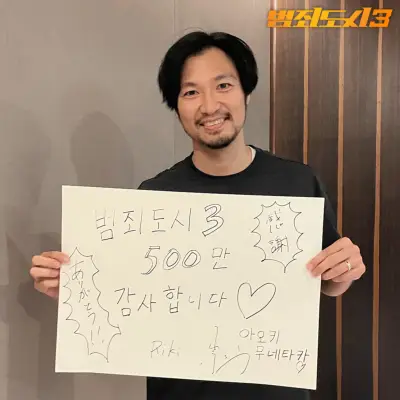 범죄도시3
범죄도시 3
感謝
500만
ありがとう!!
감사합니다♡
Riki
아오키
무네타카